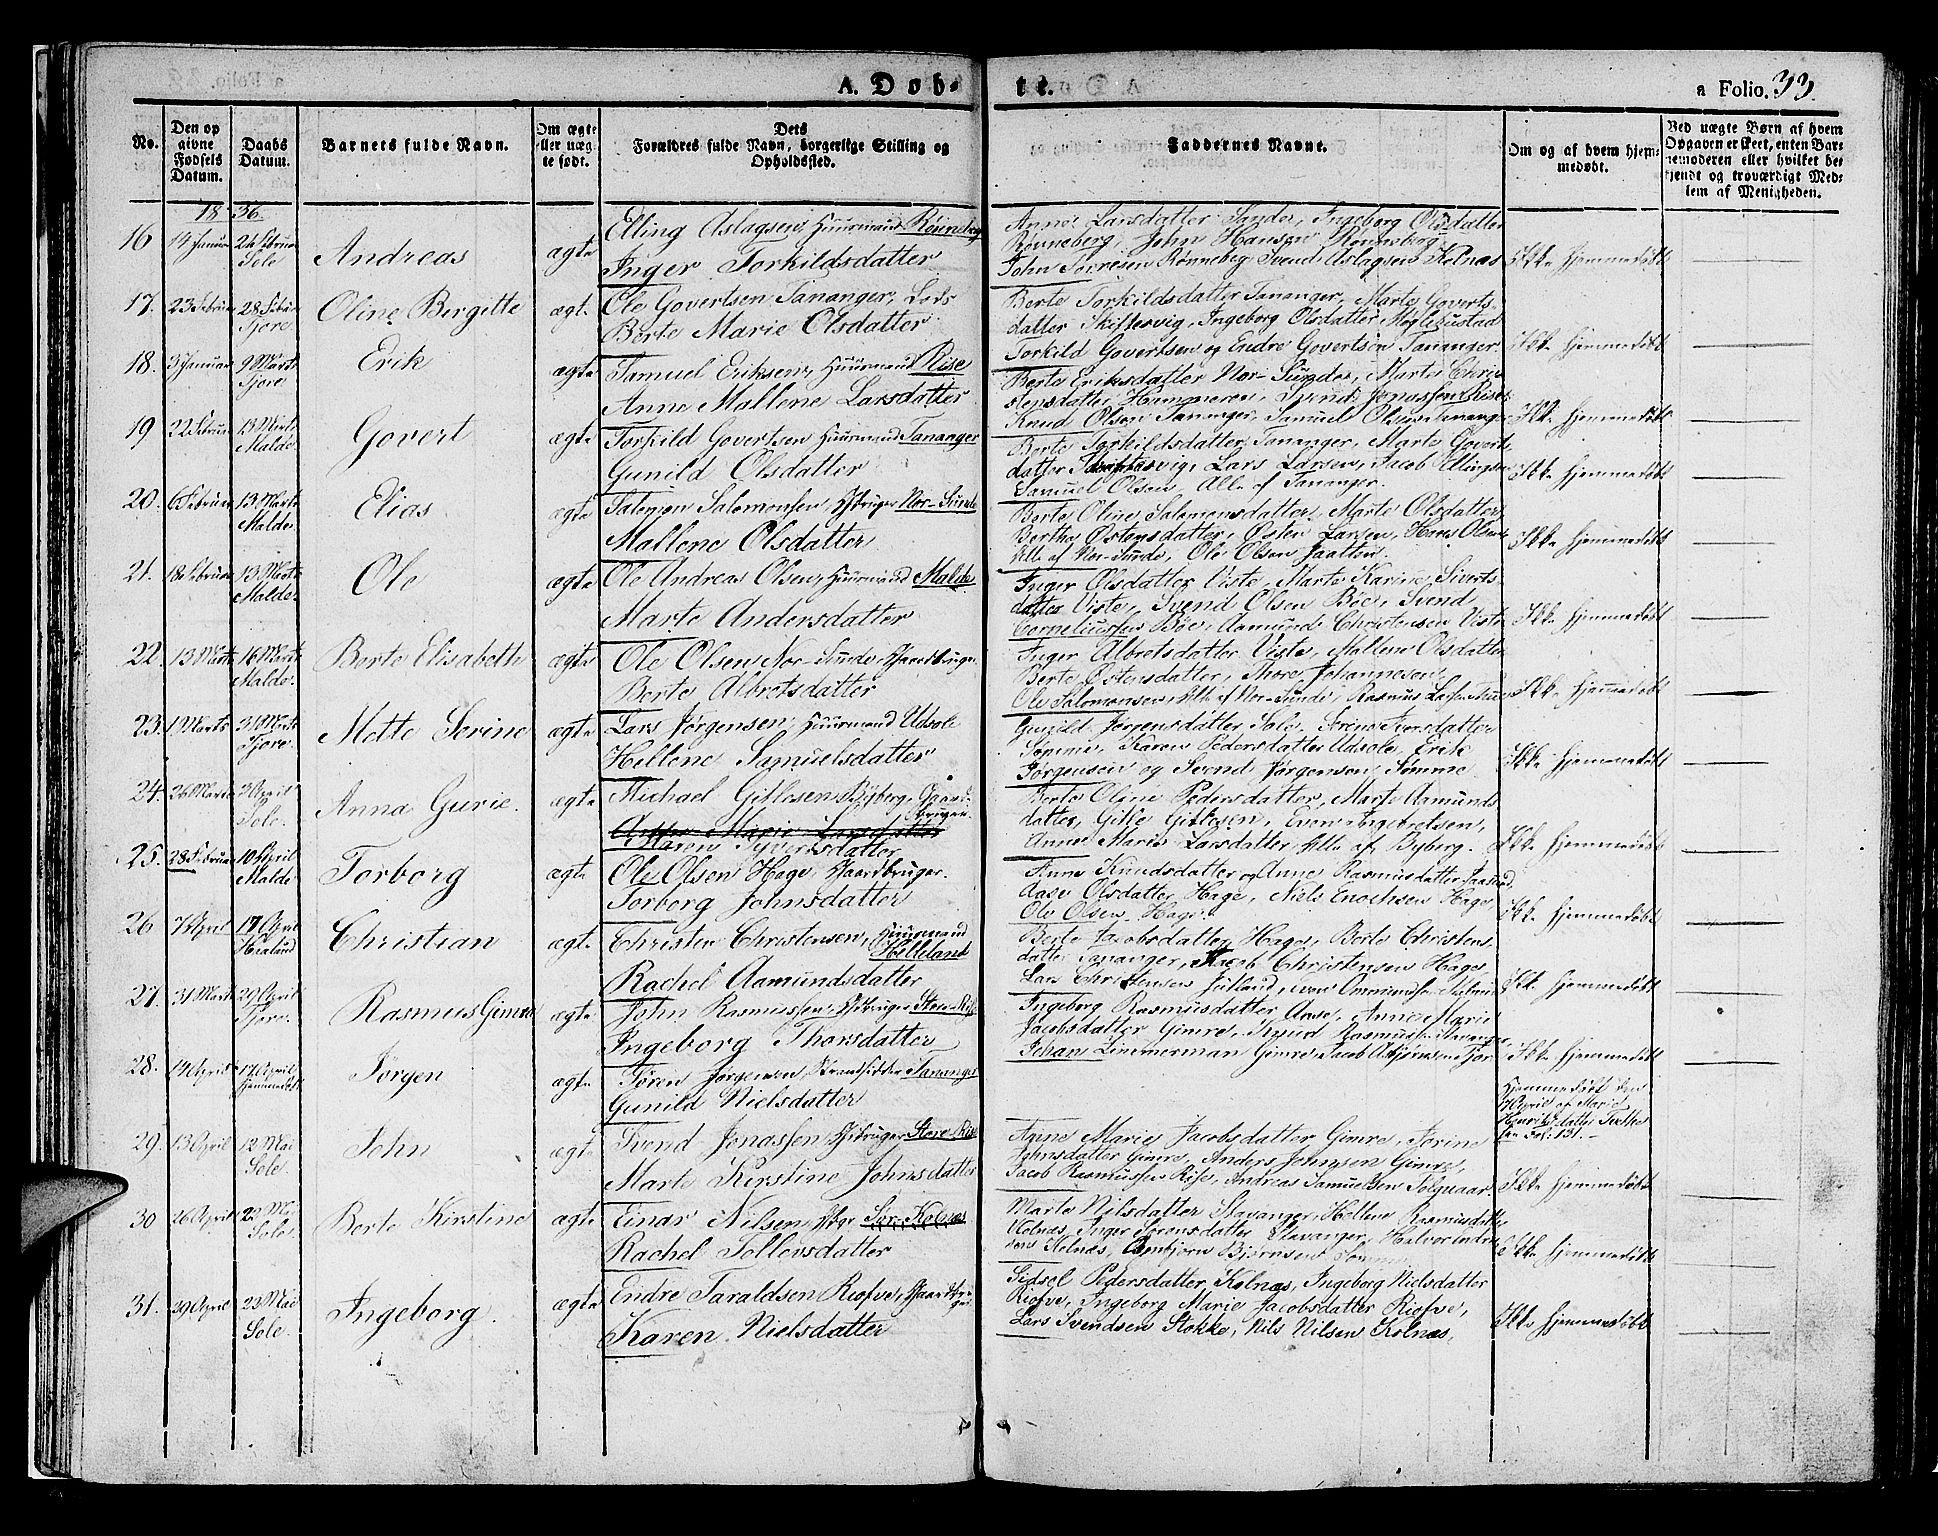 A. Døb-
te.
a Folio. 33.
No.
Den op
givne
Fødsels
Datum.
Daabs
Datum.
Barnets fulde Navn.
Om ægte
eller uæg
te født.
Dets
Forældres fulde Navn, borgerlige Stilling og
Opholdssted.
Faddernes Navne.
Om og af hvem hjem-
medøbt.
Ved uægte Børn af hvem
Opgaven er skeet, enten Bar-
nemoderen eller hvilket be-
kjendt og troværdigt Med-
lem af Menigheden.
1836.
16 14 Januar 24 Februar
Sole
Andreas
ægte
Elling Aslagsen, Huurmand Rönneberg
Inger Torkildsdatter
Anne Larsdatter Sande, Ingeborg Olsdatter
Rönneberg, John Hansen Rönneberg,
John Rönneberg Svend Aslagsen Kolnæs
Ikke hjemmedøbt
17. 23 Februar 28 Febru
Tjore
Oline Bergitte
ægte
Ole Govertsen Tananger, Lods
Berte Marie Olsdatter
Berte Torkildsdatter Tananger, Marte Goverts-
datter Skiftesvig, Ingeborg Olsdatter
Torkild Govertsen og Endre Govertsen Tananger.
Ikke hjemmedøbt
18. 3 Januar 9 Marts
Tjore
Erik
ægte
Samuel Eriksen, Huurmand Rise
Anne Mallene Larsdatter
Berte Eriksdatter Nor-Sunde, Marte Chri-
stensdatter Svend Jonassen Rise,
Knud Olsen Tananger, Samuel Olsen Tananger
Ikke hjemmedøbt
19 22 Februar 13 Marts
Malde
Govert
ægte
Torkild Govertsen Huurmand Tananger
Gunild Olsdatter
Berte Torkildsdatter Tananger, Marte Govert
datter Lars Larsen, Jacob Ellingsen
Samuel Olsen, Alle af Tananger.
Ikke hjemmedøbt
20. 6 Februar 13 Marts
Malde
Elias
ægte
Salomon Salomonsen, Nor-Sunde
Mallene Olsdatter
Berte Oline Salomonsdatter, Marte Olsdatter,
Bertha Østensdatter, Østen Larsen, Hans Olsen
Alle af Nor-Sunde, Ole Olsen Jaatten.
Ikke hjemmedøbt
21. 18 Februar 13 Marts
Malde
Ole
ægte
Ole Andreas Olsen, Huurmand Malde
Marte Andersdatter
Inger Olsdatter Viste, Marte Karine Siverts-
datter Viste, Svend Olsen Böe, Svend
Corneliussen Böe, Aamund Christensen Viste
Ikke hjemmedøbt
22. 13 Marts 16 Marts
Malde
Berte Elisabeth
ægte
Ole Olsen Nor-Sunde, Gaardbruger.
Berte Albretsdatter
Inger Albretsdatter Viste, Mallene Olsdatter
Berte Østensdatter, Thore Johannesen,
Ole Salomonsen, Alle af Nor-Sunde, Rasmus
Ikke hjemmedøbt
23. 1 Marts 31 Marts
Tjore
Mette Serine
ægte
Lars Jörgensen, Huurmand Udsole
Hellene Samuelsdatter
Gunild Jörgensdatter Sole, Serene Iversdatter
Sömme, Karen Pedersdatter Udsole, Erik
Jörgensen og Svend Jörgensen Sömme
Ikke hjemmedøbt
24. 26 Marts 3 April
Sole
Anna Gurie.
ægte
Michael Gitlesen Byberg, Gaard-
bruger.
Maren Syvertsdatter
Berte Oline Pedersdatter, Marte Aamunds
datter, Gitle Gitlesen, Even Ingebretsen,
Anne Marie Larsdatter, Alle af Byberg.
Ikke hjemmedøbt
25. 28 Februar 10 April
Malde
Torborg
ægte
Ole Olsen Hage, Gaardbruger.
Torborg Johnsdatter
Anne Knudsdatter og Anne Rasmusdatter
Aase Olsdatter Hage, Niels Enochsen Hage
Ole Olsen Hage.
Ikke hjemmedøbt
26 7 April 17 April
Christian
ægte
Christen Christensen, Huurmand
Helleland
Rachel Aamundsdatter
Berte Jacobsdatter Hage, Berte Christens
datter Tananger, Jacob Christensen Hage,
Lars Christensen
Ikke hjemmedøbt
27. 31 Marts 29 April
Tjore.
Rasmus Gimre
ægte
John Rasmussen, Store-Rise
Ingeborg Thorsdatter
Ingeborg Rasmusdatter Aase, Anne Marie
Jacobsdatter Gimre, Knud Rasmussen Stavanger,
Johan Zimmerman Gimre, Jacob Tjore
Ikke hjemmedøbt
28. 14 April 17 April
hjemmedøbt
Jørgen
ægte
Sören Jörgensen, Strandsidder Tananger
Gunild Nielsdatter
Hjemmedøbt den
17 April af Marie
Henriksdatter
Fol: 131.
29. 13 April 12 Mai
Sole.
John
ægte
Svend Jonassen, Store Rise
Marte Kirstine Johnsdatter
Anne Marie Jacobsdatter Gimre, Serine
Johnsdatter Gimre, Anders Johnsen Gimre,
Jacob Rasmussen Rise, Andreas Samuelsen
Ikke hjemmedøbt
30 26 April 22 Mai
Sole
Berte Kirstine
ægte
Einar Nilsen, Gbr Sör-Kolnæs
Rachel Tollevsdatter
Marte Nilsdatter Stavanger, Hellene Rasmusdatter
Kolnæs, Inger Sörensdatter Stavanger, Halvor
Kolnæs, Björnsen
Ikke hjemmedøbt
31. 29 April 23 Mai
Sole.
Ingeborg.
ægte
Endre Taraldsen Riofve, Gaardbru-
ger.
Karen Nielsdatter
Sidsel Pedersdatter Kolnæs, Ingeborg Nielsdatter
Riofve, Ingeborg Marie Jacobsdatter Riofve,
Lars Svendsen Stokke, Nils Nilsen Kolnæs,
Ikke hjemmedøbt